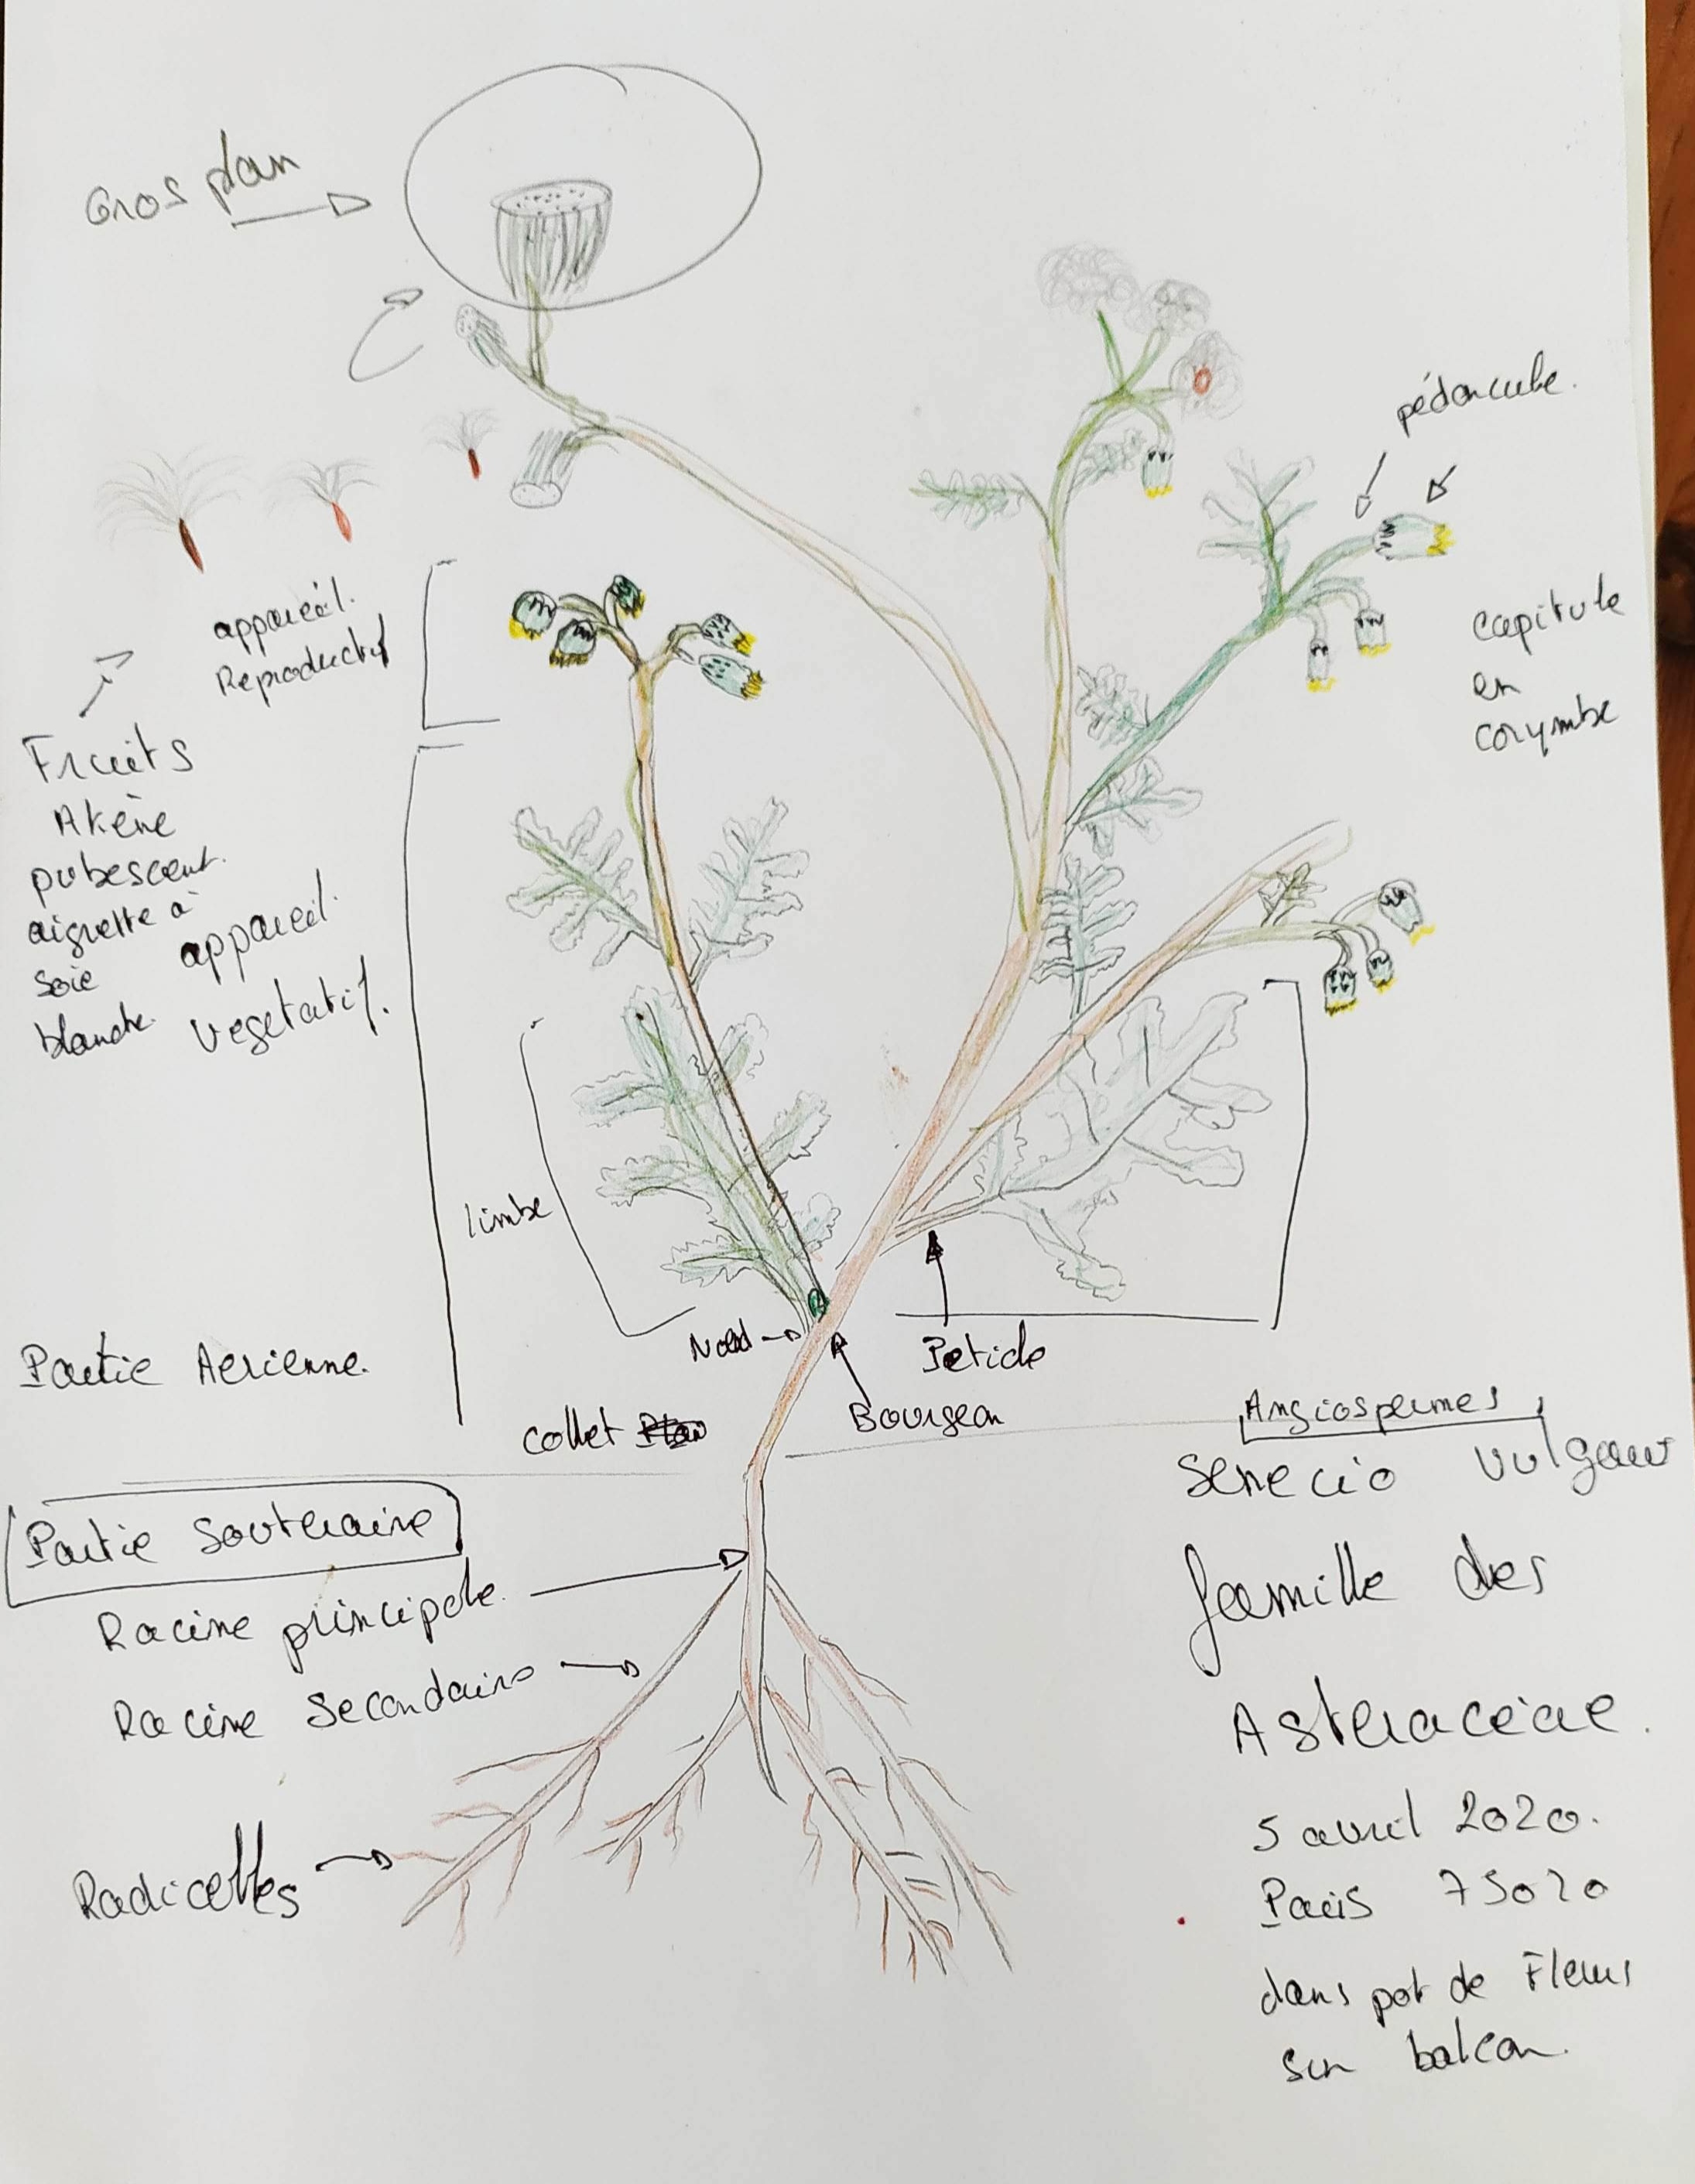 Gros plan
pédoncule.
capitule
en
corymbe
appareil.
Reproductif
Fruits
Akène
pubescent.
aigrette à
soie
blanche.
appareil.
vegetatif.
limbe
Partie Aerienne.
Nœud
Petiole
Bourgeon
collet
Angiospermes
Senecio vulgaris
famille des
Asteraceae.
5 avril 2020.
Paris 75020
dans pot de Fleurs
sur balcon.
Partie Souteraine
Racine principale.
Racine Secondaire
Radicelles